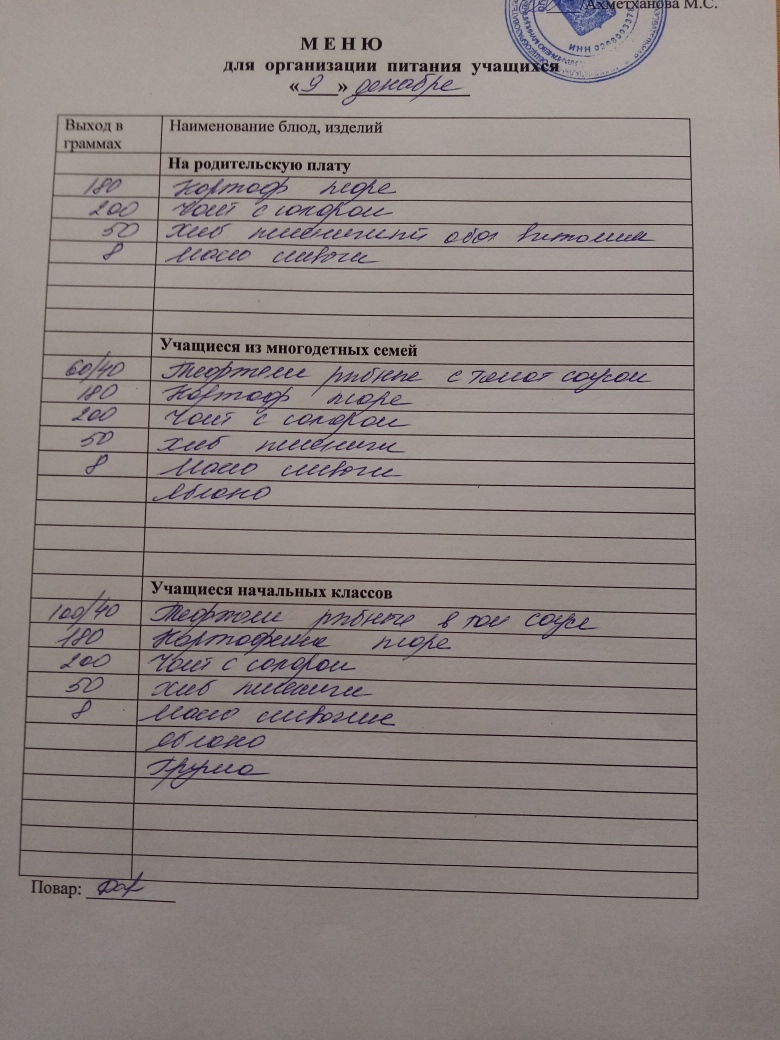 Ахметханова М.С.
М Е Н Ю
для организации питания учащихся
« 9 » декабре
Выход в граммах Наименование блюд, изделий
На родительскую плату
180 Картоф пюре
200 Чай с сахаром
50 Хлеб пшеничный обог витамин
8 Масло сливочн
Учащиеся из многодетных семей
60/40 Тефтели рыбные с томат соусом
180 Картоф пюре
200 Чай с сахаром
50 Хлеб пшеничн
8 Масло сливочн
Яблоко
Учащиеся начальных классов
100/40 Тефтели рыбные в том соусе
180 Картофельное пюре
200 Чай с сахаром
50 Хлеб пшеничн
8 Масло сливочное
Яблоко
Груша
Повар: